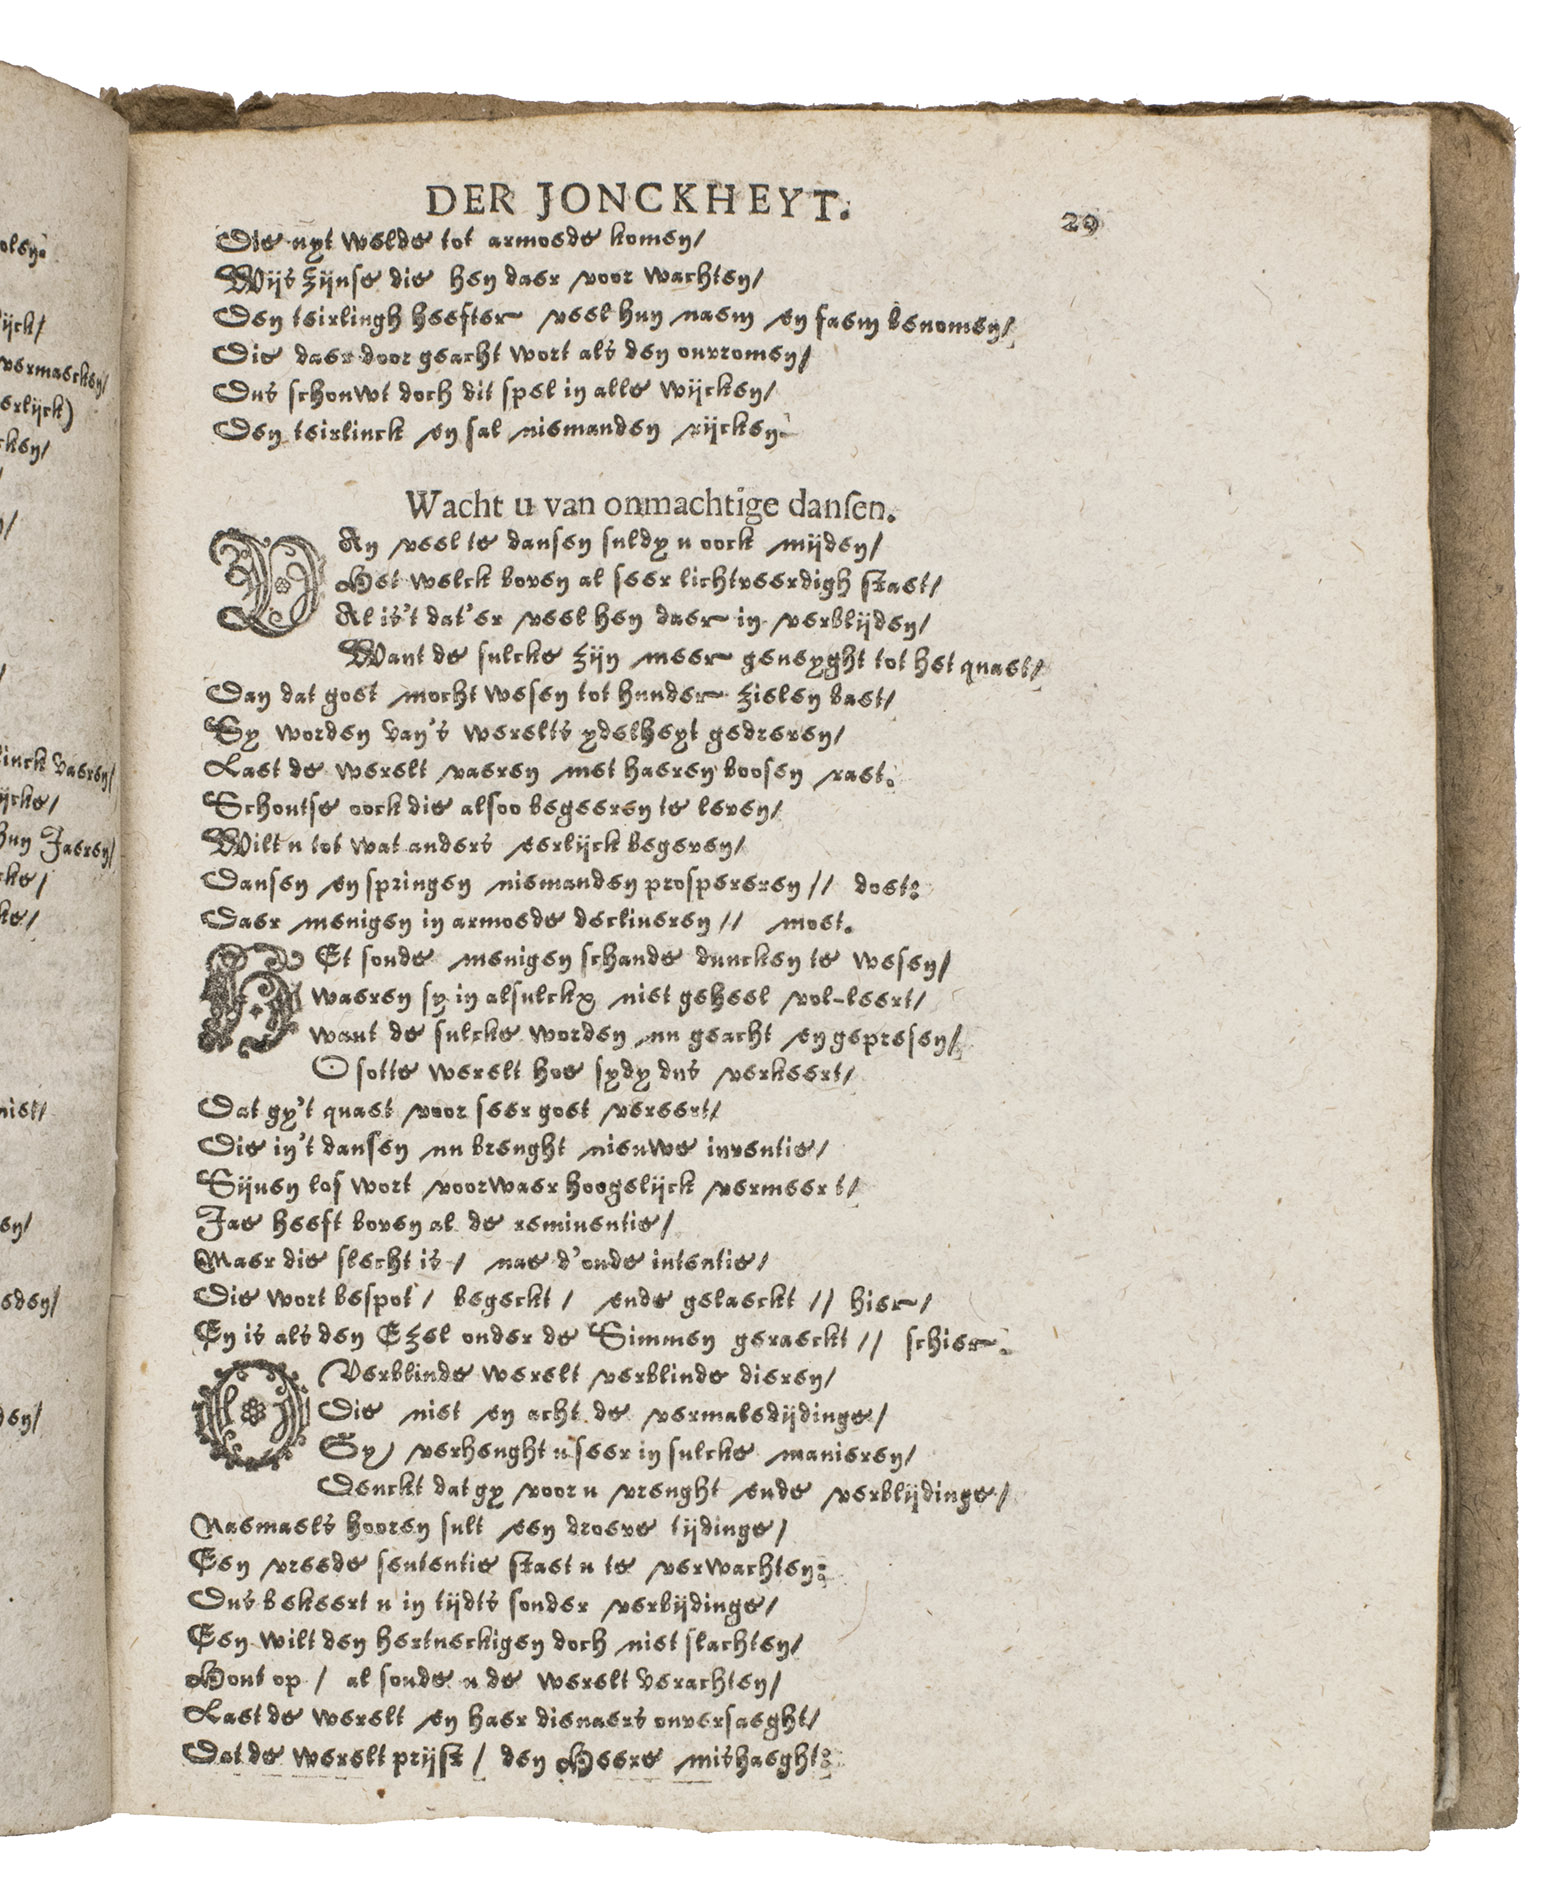 DER JONCKHEYT.
29
Die uyt welde tot armoede komen/
Wijs zijnse die hen daer voor wachten/
Den teirlingh heefter veel hun naem en faem benomen/
Die daer door geacht wort als den onvromen/
Dus schouwt doch dit spel in alle wijcken/
Den teirlinck en sal niemanden rijcken.
Wacht u van onmachtige dansen.
VAn veel te dansen suldy u oock mijden/
Het welck boven al seer lichtveerdigh staet/
Al is't dat'er veel hen daer in verblijden/
Want de sulcke zijn meer geneyght tot het quaet/
Dan dat goet mocht wesen tot hunder zielen baet/
Sy worden van's werelts ydelheyt gedreven/
Laet de werelt vaeren met haeren boosen raet.
Schoutse oock die alsoo begeeren te leven/
Wilt u tot wat anders eerlijck begeven/
Dansen en springen niemanden prospereren // doet:
Daer menigen in armoede declineren // moet.
HEt soude menigen schande duncken te wesen/
waeren sy in alsulckx niet geheel vol-leert/
want de sulcke worden nu geacht en gepresen/
O sotte werelt hoe sydy dus verkeert/
Dat gy't quaet voor seer goet vereert/
Die in't dansen nu brenght nieuwe inventie/
Sijnen lof wort voorwaer hoogelijck vermeert/
Jae heeft boven al de reminentie/
Maer die slecht is / nae d'oude intentie/
Die wort bespot / begeckt / ende gelaeckt // hier/
En is als den Ezel onder de Simmen geraeckt // schier.
O Verblinde werelt verblinde dieren/
Die niet en acht de vermaledijdinge/
Gy verheught u seer in sulcke manieren/
Denckt dat gy voor u vreught ende verblijdinge/
Naemaels hooren sult een droeve tijdinge/
Een vreede sententie staet u te verwachten:
Dus bekeert u in tijdts sonder verbijdinge/
Een wilt den hertneckigen doch niet slachten/
Hout op / al soude u de werelt verachten/
Laet de werelt en haer dienaers onversaeght/
Dat de werelt prijst / den Heere mishaeght:
olen:
ijck/
vermaecken/
erlijck)
cken/
linck vaeren/
ijcke/
hun Jaeren/
cke/
ke/
niet/
en/
eden/
den/